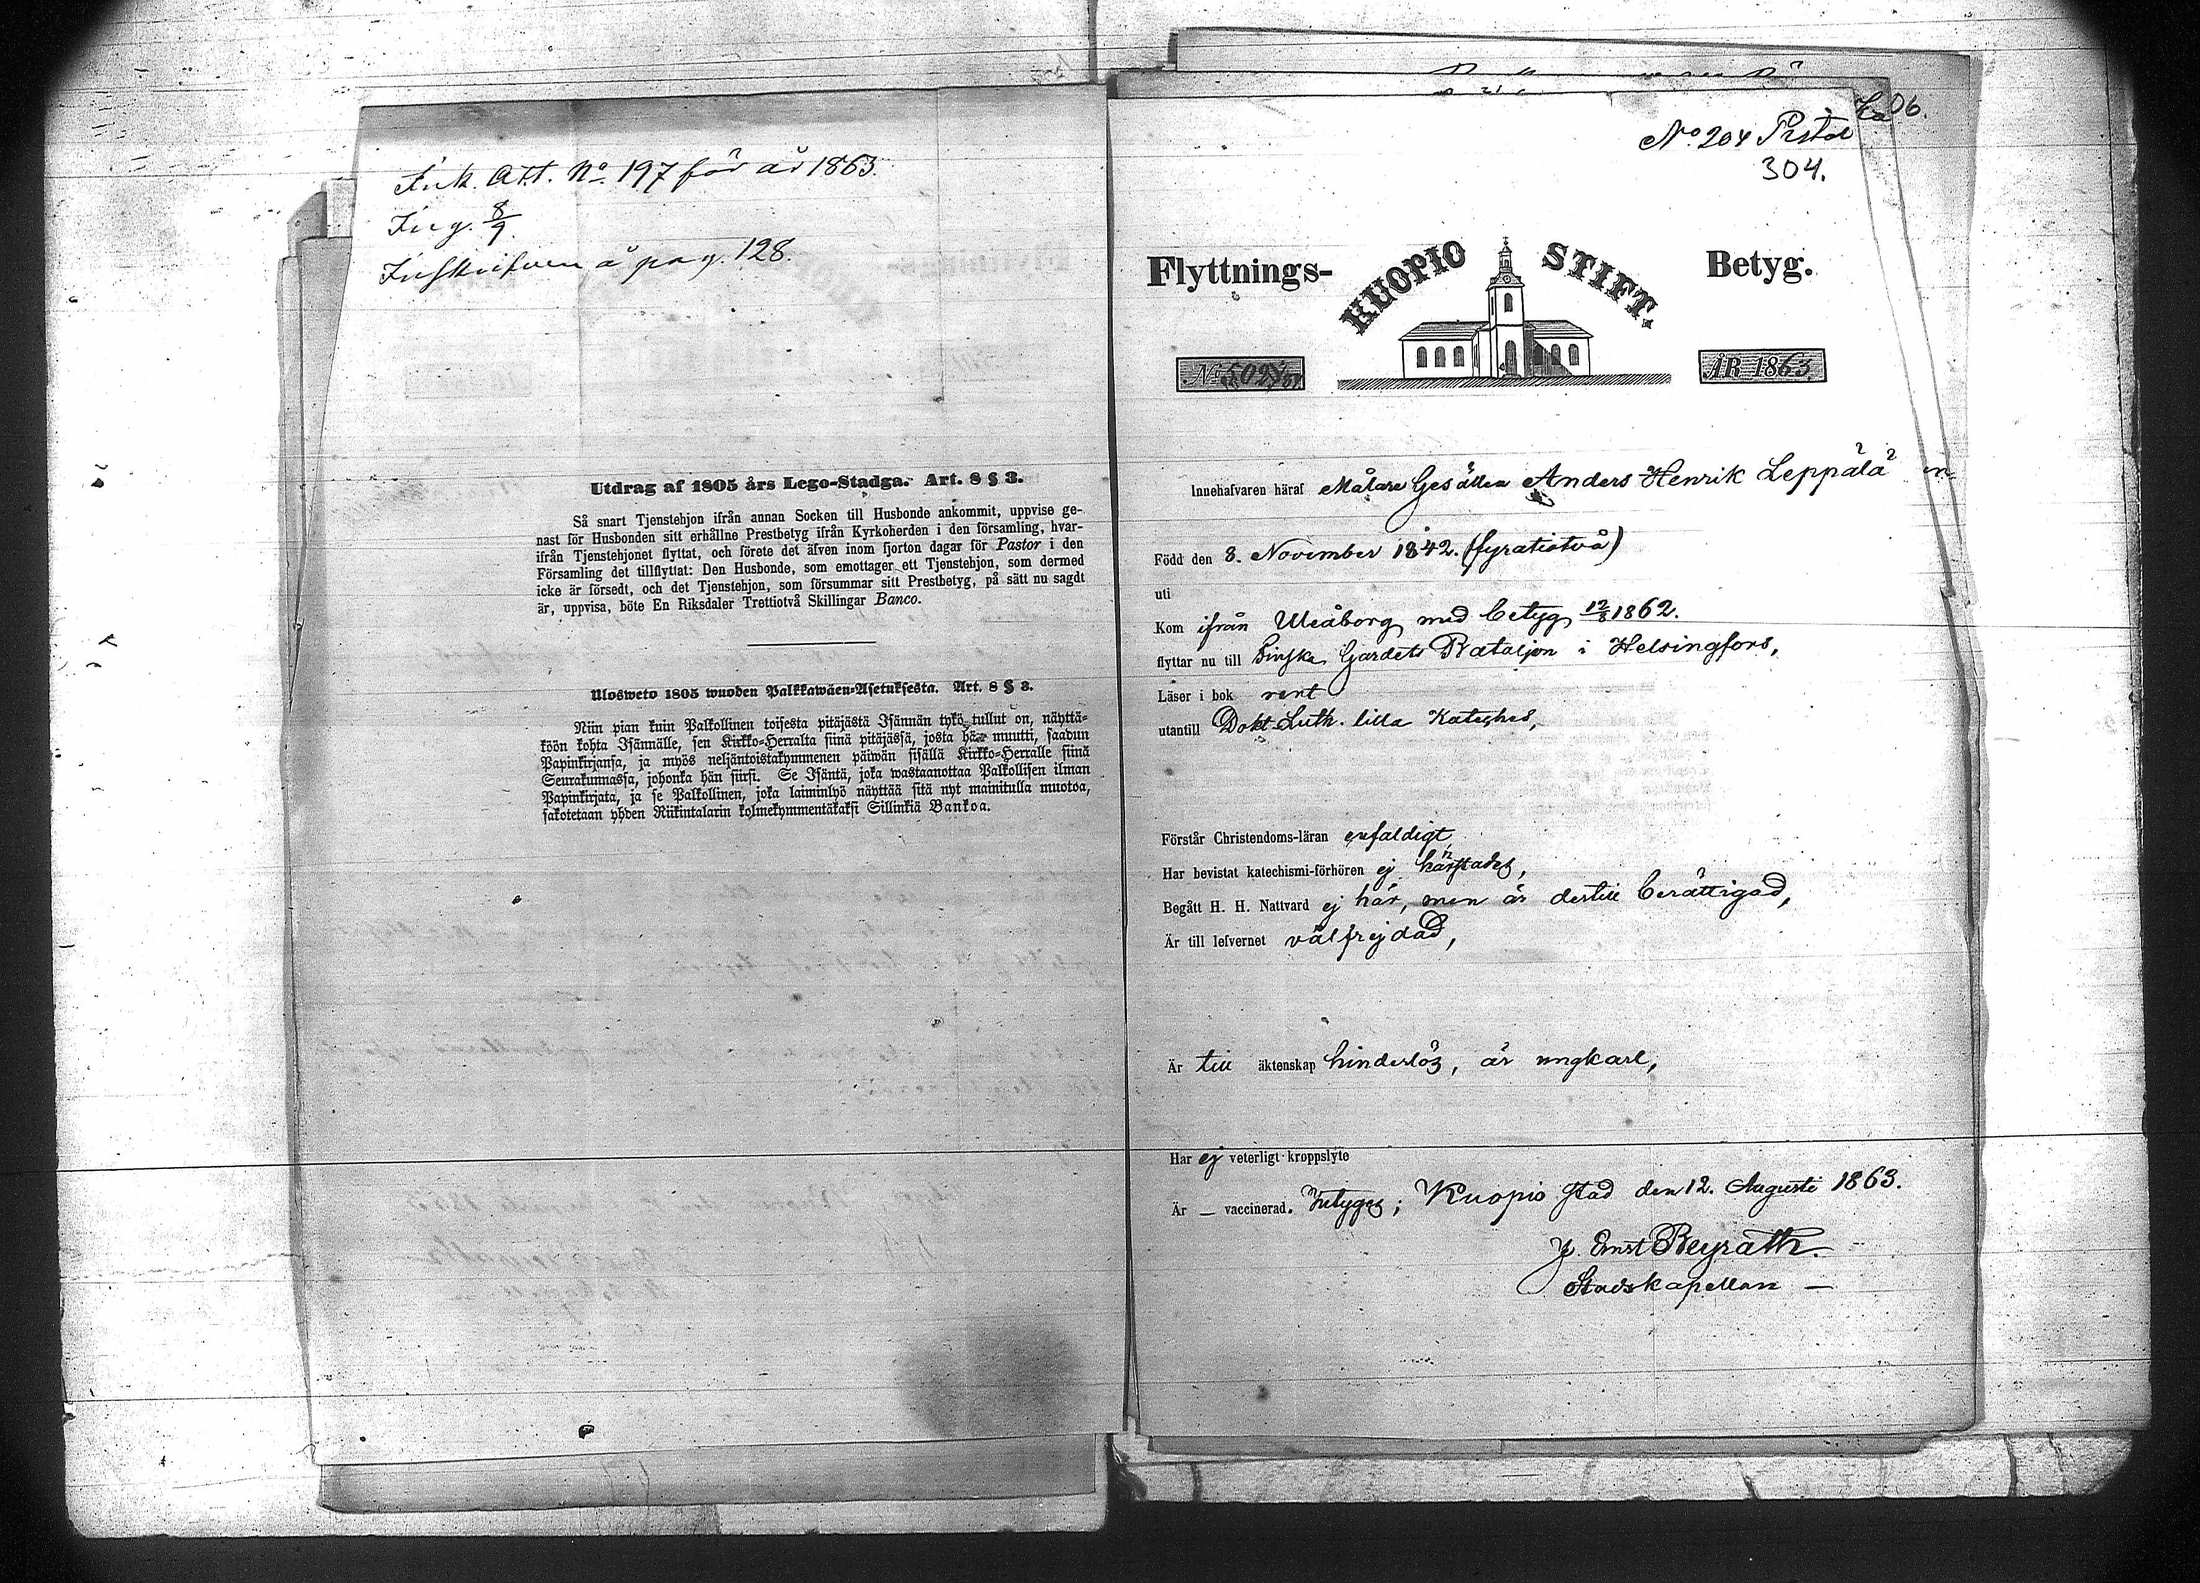 Ink. Att. No 197 för år 1863.
Ing. 8/9.
Inskrifven å pag. 128.
Utdrag af 1805 års Lego-Stadga. Art. 8 § 3.
Så snart Tjenstehjon ifrån annan Socken till Husbonde ankommit, uppvise ge-
nast för Husbonden sitt erhållne Prestbetyg ifrån Kyrkoherden i den församling, hvar-
ifrån Tjenstehjonet flyttat, och förete det äfven inom fjorton dagar för Pastor i den
Församling det tillflyttat: Den Husbonde, som emottager ett Tjenstehjon, som dermed
icke är försedt, och det Tjenstehjon, som försummar sitt Prestbetyg, på sätt nu sagdt
är, uppvisa, böte En Riksdaler Trettiotvå Skillingar Banco.
Ulosweto 1805 wuoden Palkkawäen-Asetuksesta. Art. 8 § 3.
Niin pian kuin Palkollinen toisesta pitäjästä Isännän tykö tullut on, näyttä-
köön kohta Isännälle, sen Kirkko-Herralta siinä pitäjässä, josta hän muutti, saadun
Papinkirjansa, ja myös neljäntoistakymmenen päiwän sisällä Kirkko-Herralle siinä
Seurakunnassa, johonka hän siirsi. Se Isäntä, joka wastaanottaa Palkollisen ilman
Papinkirjata, ja se Palkollinen, joka laiminlyö näyttää sitä nyt mainitulla muotoa,
sakotetaan yhden Riikintalarin kolmekymmentäkaksi Sillinkiä Bankoa.
06.
No 204
304.
Flyttnings- KUOPIO STIFT. Betyg.
No ÅR 1863.
Innehafvaren häraf Målare Gesällen Anders Henrik Leppälä
Född den 8. November 1842. (fyratiotvå)
uti
Kom ifrån Uleåborg med betyg 12/8 1862.
flyttar nu till Finska Gardets Bataljon i Helsingfors,
Läser i bok rent
utantill Dokt. Luth. lilla Kateches,
Förstår Christendoms-läran enfaldigt,
Har bevistat katechismi-förhören ej härstädes,
Begått H. H. Nattvard ej här, men är dertill berättigad,
Är till lefvernet välfrejdad,
Är till äktenskap hinderlös, är ungkarl,
Har ej veterligt kroppslyte
Är — vaccinerad. Intygas; Kuopio stad den 12. Augusti 1863.
J. Ernst Beyrath.
Stadskapellan —